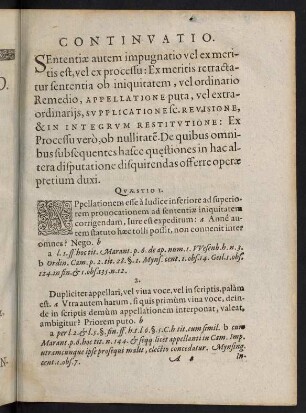 CONTINVATIO.
SEntentiæ autem impugnatio vel ex meri-
tis est, vel ex processu: Ex meritis retracta-
tur sententia ob iniquitatem, vel ordinario
Remedio, APPELLATIONE puta, vel extra-
ordinarijs, SVPPLICATIONE sc. REVISIONE,
& IN INTEGRVM RESTITVTIONE: Ex
Processu verò, ob nullitatē. De quibus omni-
bus subsequentes hasce quęstiones in hac al-
tera disputatione disquirendas offerre operæ
pretium duxi.
QVÆSTIO I.
APpellationem esse à Iudice inferiore ad superio-
rem provocationem ad sententiæ iniquitatem
corrigendam, Iure est expeditum: a Annè au-
tem statuto hæc tolli possit, non convenit inter
omnes? Nego. b
a l. 1. ff hoc tit. Marant. p. 6. de ap. num. 1. VVesenb. h. n. 3.
b Ordin. Cam. p. 2. tit. 28. §. 1. Myns. cent. 1. obs. 14. Gail. 1. obs.
124. in fin. & 1. obs. 135. n. 12.
2.
Dupliciter appellari, vel viua voce, vel in scriptis, palàm
est. a Vtra autem harum, si quis primùm viua voce, dein-
de in scriptis demùm appellationem interponat, valeat,
ambigitur? Priorem puto. b
a per l. 2. & l. 5. §. fin. ff. h. t. l. 6. §. 1. C. h tit. cum simil. b cum
Marant. p. 6. hoc tit. n. 144. & sqq licèt appellanti in Cam. Imp.
utramcunque ipse prosequi malit, electio concedatur. Mynsing.
cent. 1. obs. 7.
A in-